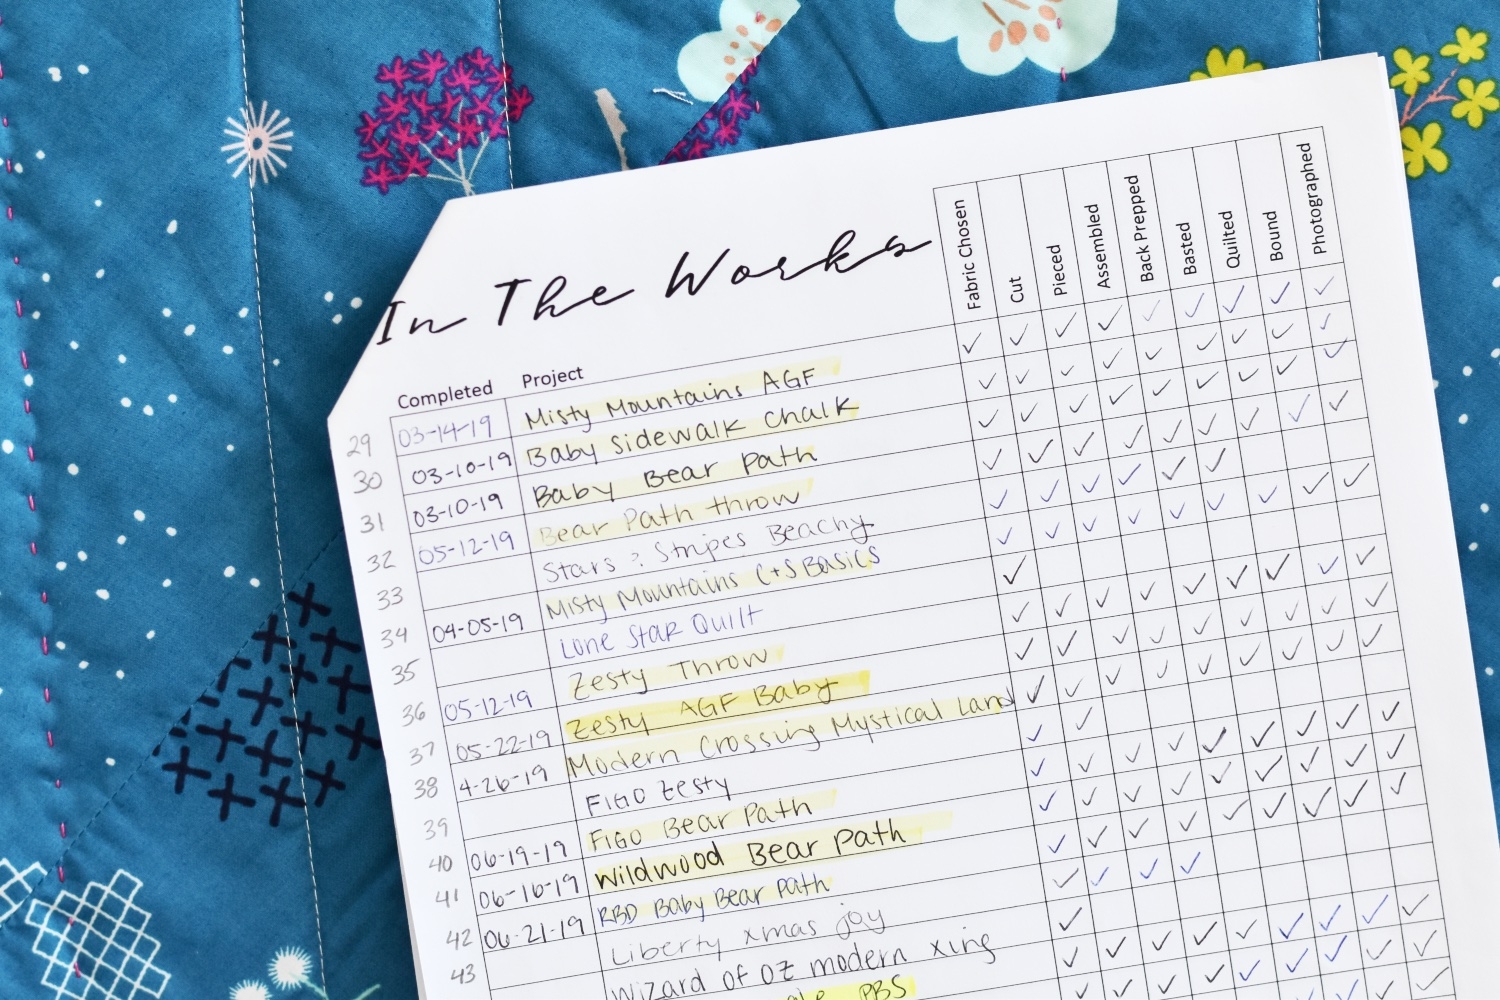 In The Works
Completed Project Fabric Chosen Cut Pieced Assembled Back Prepped Basted Quilted Bound Photographed
29 03-14-19 Misty Mountains AGF ✓ ✓ ✓ ✓ ✓ ✓ ✓ ✓ ✓
30 03-10-19 Baby Sidewalk Chalk ✓ ✓ ✓ ✓ ✓ ✓ ✓ ✓ ✓
31 03-10-19 Baby Bear Path ✓ ✓ ✓ ✓ ✓ ✓ ✓ ✓ ✓
32 05-12-19 Bear Path throw ✓ ✓ ✓ ✓ ✓ ✓ ✓ ✓ ✓
33 Stars & Stripes Beachy ✓ ✓ ✓ ✓ ✓ ✓
34 04-05-19 Misty Mountains C+S Basics ✓ ✓ ✓ ✓ ✓ ✓ ✓ ✓ ✓
35 Lone Star Quilt ✓
36 05-12-19 Zesty Throw ✓ ✓ ✓ ✓ ✓ ✓ ✓ ✓ ✓
37 05-22-19 Zesty AGF Baby ✓ ✓ ✓ ✓ ✓ ✓ ✓ ✓ ✓
38 4-26-19 Modern Crossing Mystical Land ✓ ✓ ✓ ✓ ✓ ✓ ✓ ✓ ✓
39 FIGO Zesty ✓ ✓
40 06-19-19 FIGO Bear Path ✓ ✓ ✓ ✓ ✓ ✓ ✓ ✓ ✓
41 06-16-19 Wildwood Bear Path ✓ ✓ ✓ ✓ ✓ ✓ ✓ ✓ ✓
42 06-21-19 RBD Baby Bear Path ✓ ✓ ✓ ✓ ✓ ✓ ✓ ✓ ✓
43 Liberty xmas joy ✓ ✓ ✓ ✓
Wizard of Oz modern xing ✓
PBS